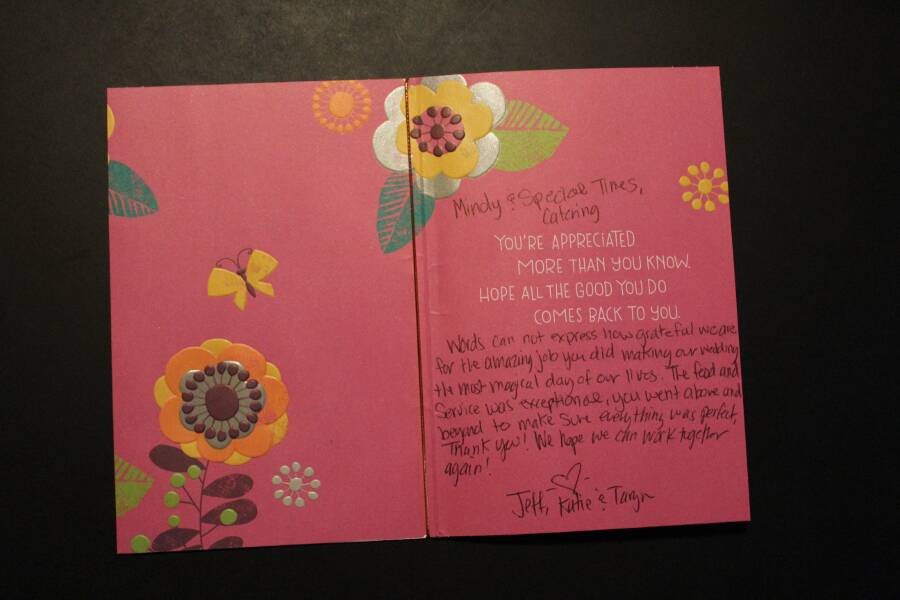 Mindy & Special Times,
Catering
YOU'RE APPRECIATED
MORE THAN YOU KNOW.
HOPE ALL THE GOOD YOU DO
COMES BACK TO YOU.
Words can not express how grateful we are
for the amazing job you did making our wedding
the most magical day of our lives. The food and
service was exceptional, you went above and
beyond to make sure everything was perfect,
Thank you! We hope we can work together
again!
Jeff, Katie & Taryn